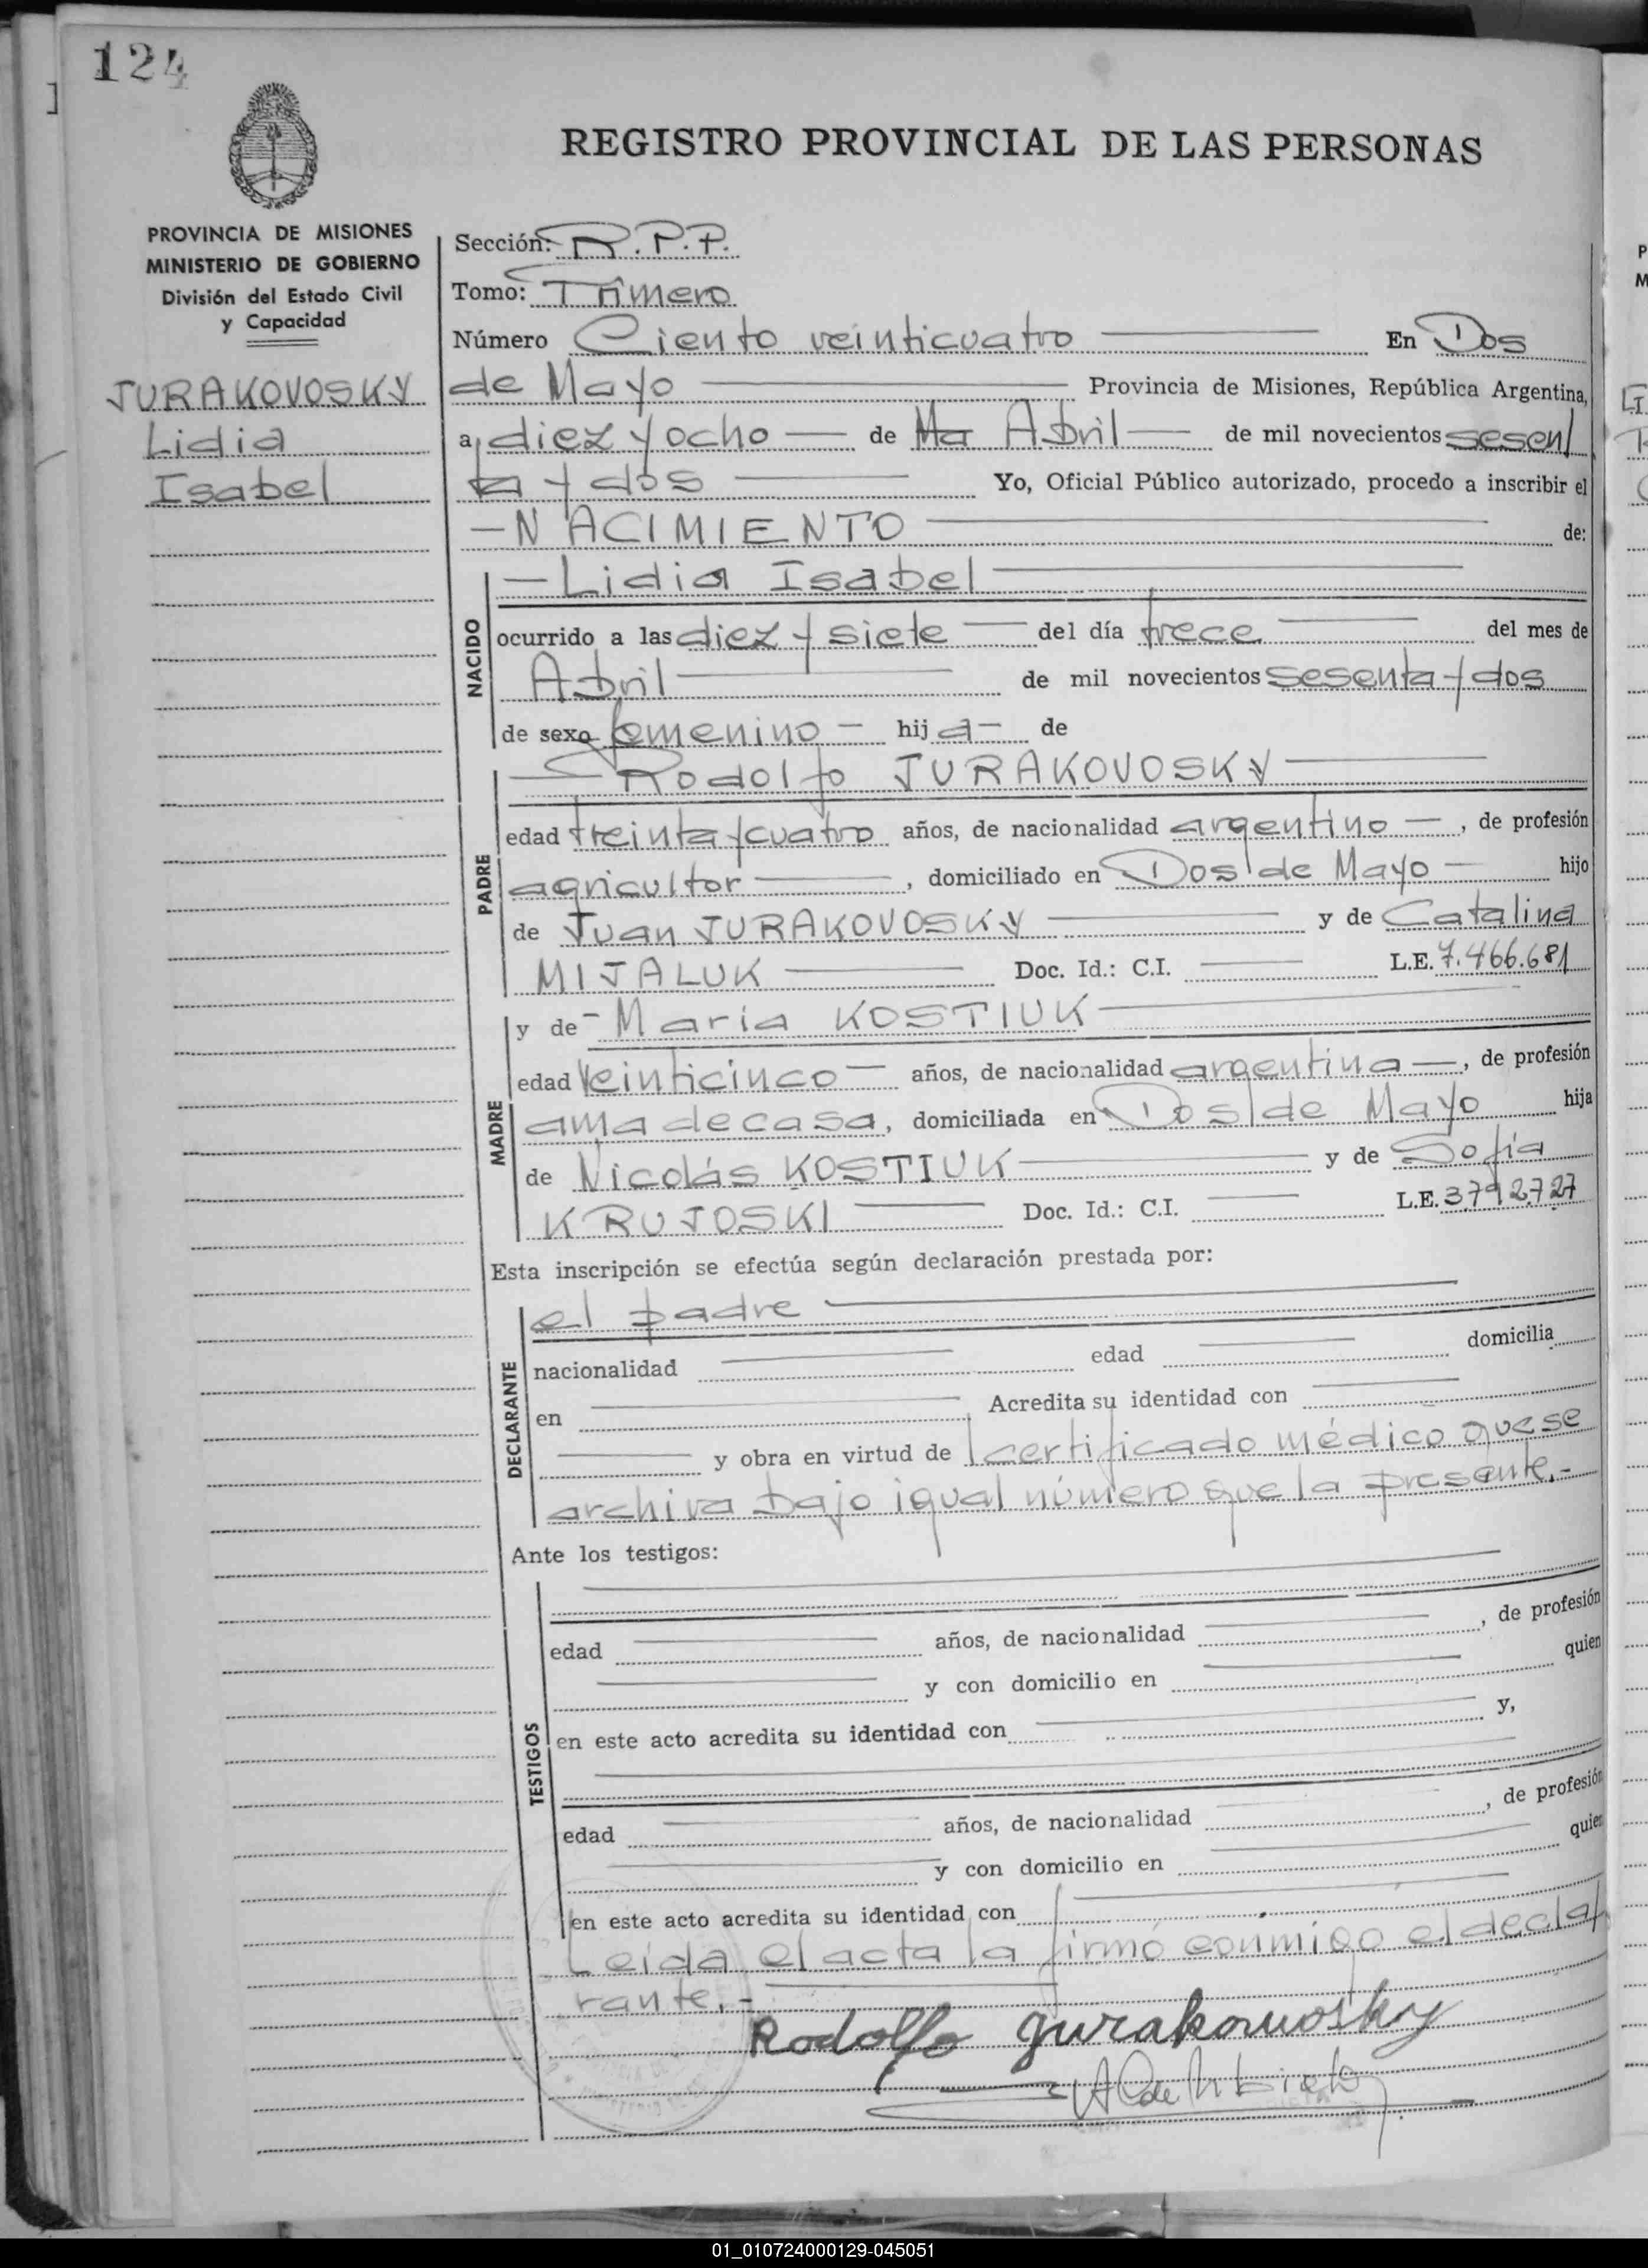 124
REGISTRO PROVINCIAL DE LAS PERSONAS
PROVINCIA DE MISIONES
MINISTERIO DE GOBIERNO
División del Estado Civil
y Capacidad
JURAKOVOSKY
Lidia
Isabel
Sección: R.P.P.
Tomo: Primero
Número Ciento veinticuatro En Dos
de Mayo Provincia de Misiones, República Argentina,
a diez y ocho de Ma Abril de mil novecientos sesen
ta y dos Yo, Oficial Público autorizado, procedo a inscribir el
-NACIMIENTO de:
NACIDO
-Lidia Isabel
ocurrido a las diez y siete del día trece del mes de
Abril de mil novecientos sesenta y dos
de sexo femenino - hija- de
PADRE
Rodolfo JURAKOVOSKY
edad treinta y cuatro años, de nacionalidad argentino -, de profesión
agricultor, domiciliado en Dos de Mayo hijo
de Juan JURAKOVOSKY y de Catalina
MIJALUK Doc. Id.: C.I. L.E. 7.466.681
MADRE
y de - Maria KOSTIUK
edad Veinticinco años, de nacionalidad argentina -, de profesión
ama de casa, domiciliada en Dos de Mayo hija
de Nicolás KOSTIUK y de Sofía
KRUJOSKI Doc. Id.: C.I. L.E. 3792727
Esta inscripción se efectúa según declaración prestada por:
DECLARANTE
el padre
nacionalidad edad domicilia
en Acredita su identidad con
y obra en virtud de certificado médico que se
archiva bajo igual número que la presente.-
Ante los testigos:
TESTIGOS
edad años, de nacionalidad , de profesión
y con domicilio en quien
en este acto acredita su identidad con y,
edad años, de nacionalidad , de profesión
y con domicilio en quien
en este acto acredita su identidad con
Leída el acta la firmó conmigo el decla
rante.-
Rodolfo Jurakowosky
01_010724000129-045051